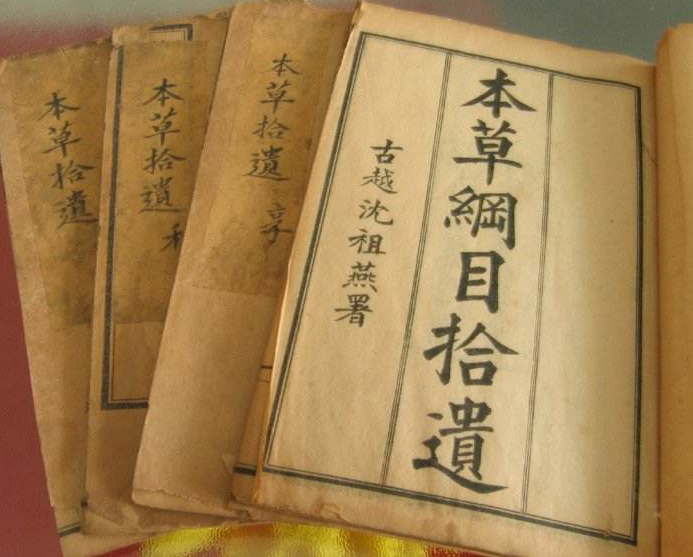 本草綱目拾遺
古越沈祖燕署
本草拾遺
亨
本草拾遺
本草拾遺